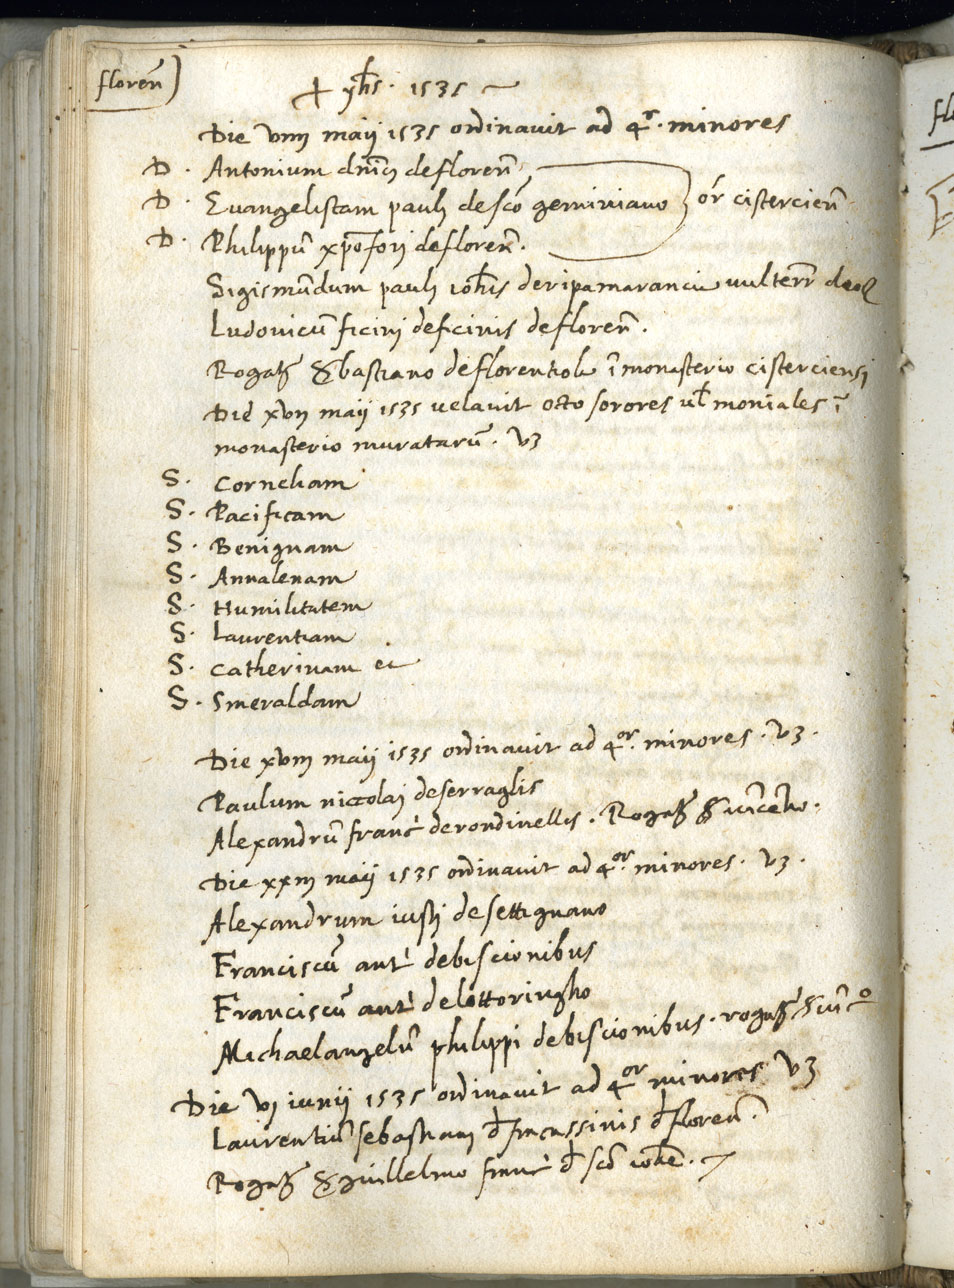 floreñ)
+ yh̄s · 1535
Die viiij maij 1535 ordinavit ad 4r · minores
D · Antonium dñici de floreñ
D · Evangelistam pauli de sc̄o geminiano } or̄ cistercieñ
D · Philippū xpōfori de floreñ ·
Sigismūdum pauli ioh̄is de ripamarancie vulterr̄
Ludovicū ficini de ficinis de floreñ ·
Rogaṫ s̄ bastiano de florentiola ī monasterio cisterciensi
Die xvij maij 1535 velavit octo sorores vl̄ moniales ī
monasterio muratarū · vz
S · Corneliam
S · Pacificam
S · Benignam
S · Annalenam
S · Humilitatem
S · Laurentiam
S · Catherinam et
S · Smeraldam
Die xviij maij 1535 ordinavit ad 4or · minores · vz ·
Paulum niccolai de serraglis
Alexandrū franc̄ de rondinellis · Rogaṫ s̄ vincētio ·
Die xxiij maij 1535 ordinavit ad 4or · minores · vz ·
Alexandrum iusti de settignano
Franciscū ant̄ de biscionibus
Franciscū ant̄ de lottoringho
Michaelangelū philippi de biscionibus · rogaṫ s̄ vīc̄o
Die vi iunij 1535 ordinavit ad 4or minores vz
Laurentiū sebastiani d̄ fracassinis d̄ floreñ ·
Rogaṫ s̄ guillelmo franc̄ d̄ sc̄o ioh̄e ·